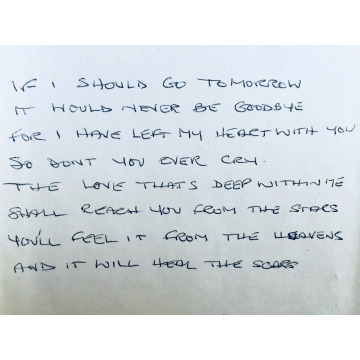 IF I SHOULD GO TOMORROW
IT WOULD NEVER BE GOODBYE
FOR I HAVE LEFT MY HEART WITH YOU
SO DONT YOU EVER CRY.
THE LOVE THATS DEEP WITHIN ME
SHALL REACH YOU FROM THE STARS
YOU'LL FEEL IT FROM THE HEAVENS
AND IT WILL HEAL THE SCARS